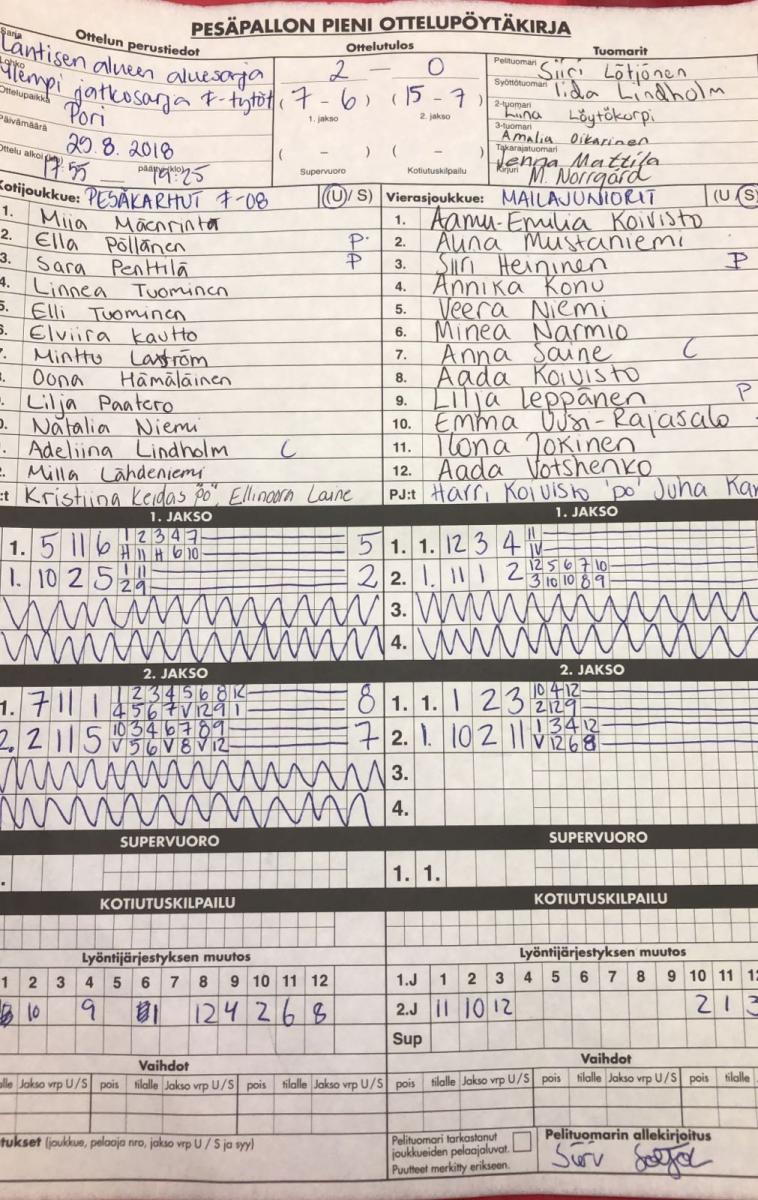 PESÄPALLON PIENI OTTELUPÖYTÄKIRJA
Sarja Ottelun perustiedot Ottelutulos Tuomarit
Läntisen alueen aluesarja
Lohko ylempi jatkosarja F-tytöt
Ottelupaikka Pori
Päivämäärä 29.8.2018
Ottelu alkoi (klo) 17:55 — päättyi (klo) 19:25
2 — 0
(7-6) (15-7)
1. jakso 2. jakso
( - ) ( - )
Supervuoro Kotiutuskilpailu
Pelituomari Siiri Lötjönen
Syöttötuomari Iida Lindholm
2-tuomari Liina Löytökorpi
3-tuomari Amalia Oikarinen
Takarajatuomari Jenna Mattila
Kirjuri M. Norrgård
Kotijoukkue: PESÄKARHUT F-08 (U/S)
1. Mija Mäenrinta
2. Ella Pöllänen P
3. Sara Penttilä P
4. Linnea Tuominen
5. Elli Tuominen
6. Elviira Kautto
Minttu
Oona Hämäläinen
Lilja Paatero
Natalia Niemi
Adeliina Lindholm C
Milla Lähdeniemi
Kristiina Keidas "pö", Ellinoora Laine
Vierasjoukkue: MAILAJUNIORIT (U/S)
1. Aamu-Emilia Koivisto
2. Auna Mustaniemi
3. Siiri Heininen P
4. Annika Konu
5. Veera Niemi
6. Minea Narmio
7. Anna Saine C
8. Aada Koivisto
9. Lilja Leppänen P
10. Emma Uusi-Rajasalo
11. Ilona Jokinen
12. Aada Votshenko
PJ:t Harri Koivisto 'pö' Juha
1. JAKSO 1. JAKSO
1. 5 11 6 1 2 3 4 7 5
H 11 H 6 10
1. 10 2 5 1 11 2
2 9
1. 1. 12 3 4 11
IV
2. 1. 11 1 2 12 5 6 7 10
3 10 10 8 9
3.
4.
2. JAKSO 2. JAKSO
1. 7 11 1 1 2 3 4 5 6 8 12 8
4 5 6 7 V 12 9 1
2. 2 11 5 10 3 4 6 7 8 9 7
V 5 6 V 8 V 12
1. 1. 1 2 3 10 4 12
2 12 9
2. 1. 10 2 11 1 3 4 12
V 12 6 8
3.
4.
SUPERVUORO SUPERVUORO
1. 1.
KOTIUTUSKILPAILU KOTIUTUSKILPAILU
Lyöntijärjestyksen muutos Lyöntijärjestyksen muutos
1 2 3 4 5 6 7 8 9 10 11 12 1.J 1 2 3 4 5 6 7 8 9 10 11
10 9 12 4 2 6 8 2.J 11 10 12 2 1 3
Sup
Vaihdot Vaihdot
Jakso vrp U/S pois tilalle Jakso vrp U/S pois tilalle Jakso vrp U/S pois tilalle Jakso vrp U/S pois tilalle Jakso vrp U/S pois
(joukkue, pelaaja nro, jakso vrp U / S ja syy)
Pelituomari tarkastanut
joukkueiden pelaajaluvat.
Puutteet merkitty erikseen.
Pelituomarin allekirjoitus